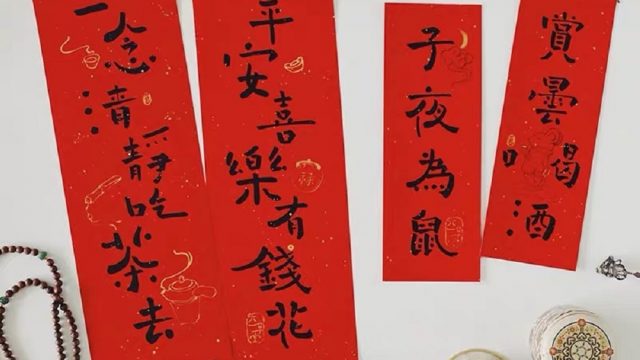 賞曇喝酒
子夜為鼠
平安喜樂有錢花
一念清靜吃茶去